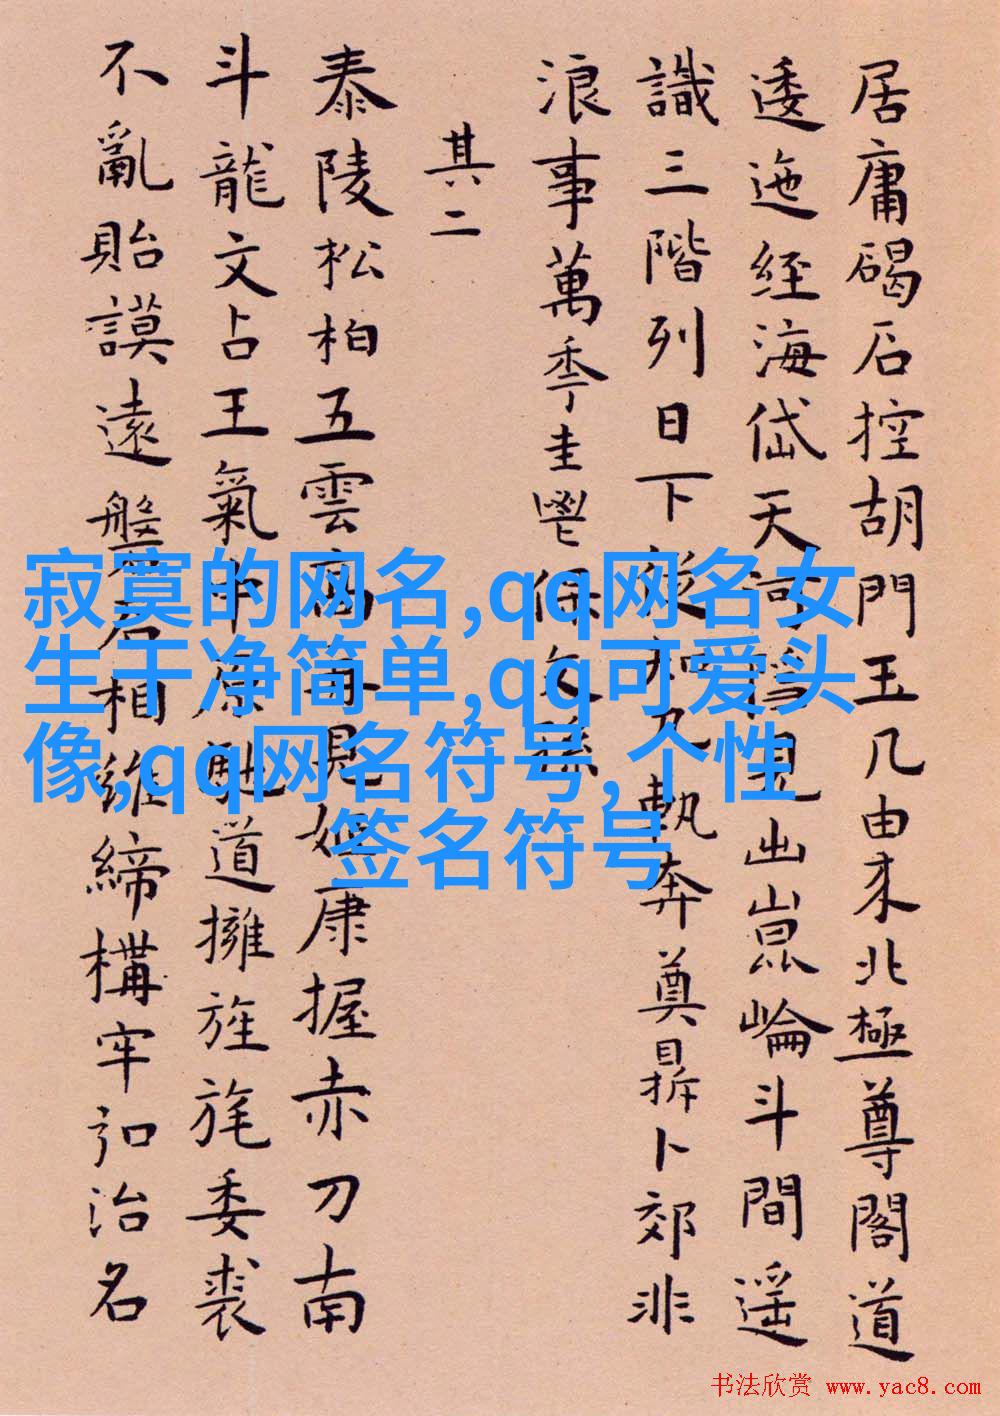 居庸碣石控胡門王几由来北極尊閣道
逶迤經海岱天河出崑崙斗間遥
識三階列日下從知及執奔奠鼎卜郊非
浪事萬季圭鬯保文孫
其二
泰陵松柏五雲高再見姬康握赤刀南
斗龍文占王氣中原道擁旌旄委裘
不亂貽謨遠盤石相維締構牢治名
寂寞的网名,qq网名女
生干净简单,qq可爱头
像,qq网名符号,个性
签名符号
书法欣赏 www.yac8.com